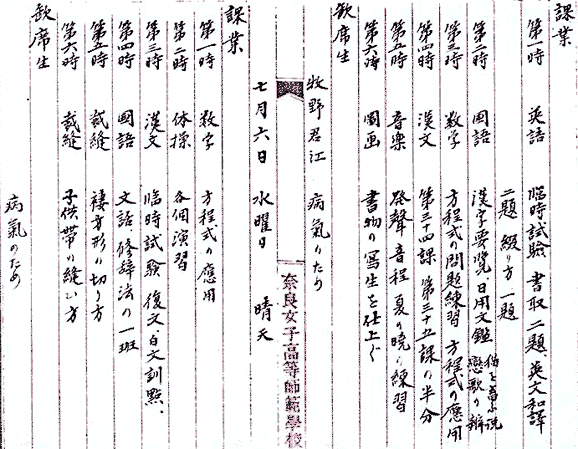 課業
第一時 英語 臨時試験 書取二題、英文和譯
二題 綴り方 一題
第二時 國語 漢字要覧、日用文鑑 猫を畜ふ説 戀歌の辨
第三時 数学 方程式の問題練習 方程式の應用
第四時 漢文 第三十四課、第三十五課の半分
第五時 音楽 発聲、音程、夏の暁の練習
第六時 圖画 書物の写生を仕上ぐ
欽席生
牧野君江 病氣のため
奈良女子高等師範學校
七月六日 水曜日 晴天
課業
第一時 数学 方程式の應用
第二時 体操 各個演習
第三時 漢文 臨時試験 復文、白文訓點、
第四時 國語 文話、修辞法の一班
第五時 裁縫 褄方形の切り方
第六時 裁縫 子供帯の縫ひ方
欽席生
病氣のため